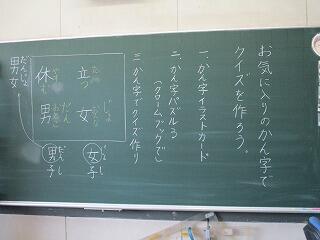 お気に入りのかん字で
クイズを作ろう。
一、かん字イラストカード
二、かん字パズル3
（クロームブックで）
三、かん字でクイズ作り
立つ
女 じょ
休 やす
男 だん
女子 じょし
男子 だんし
男女 だんじょ